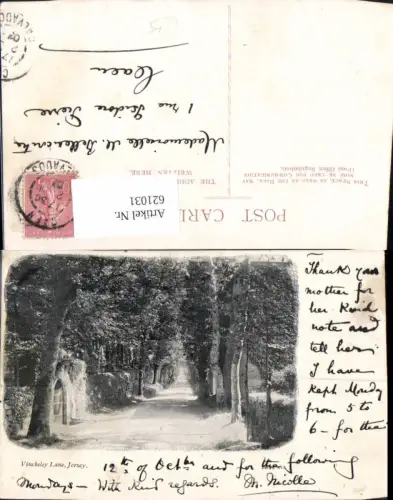 POST CARD
THIS SPACE, AS WELL AS THE BACK, MAY
NOW BE USED FOR COMMUNICATION
(Post Office Regulation).
WRITTEN HERE.
Artikel Nr.
621031
Mademoiselle M.
1 rue Isidore Pierre
Caen
Thank you
mother for
her kind
note and
tell her
I have
kept Monday
from 5 to
6 - for the
12th of Octbr and for the following
Mondays - With kind regards. M. Nicolle
Vinchelez Lane, Jersey.